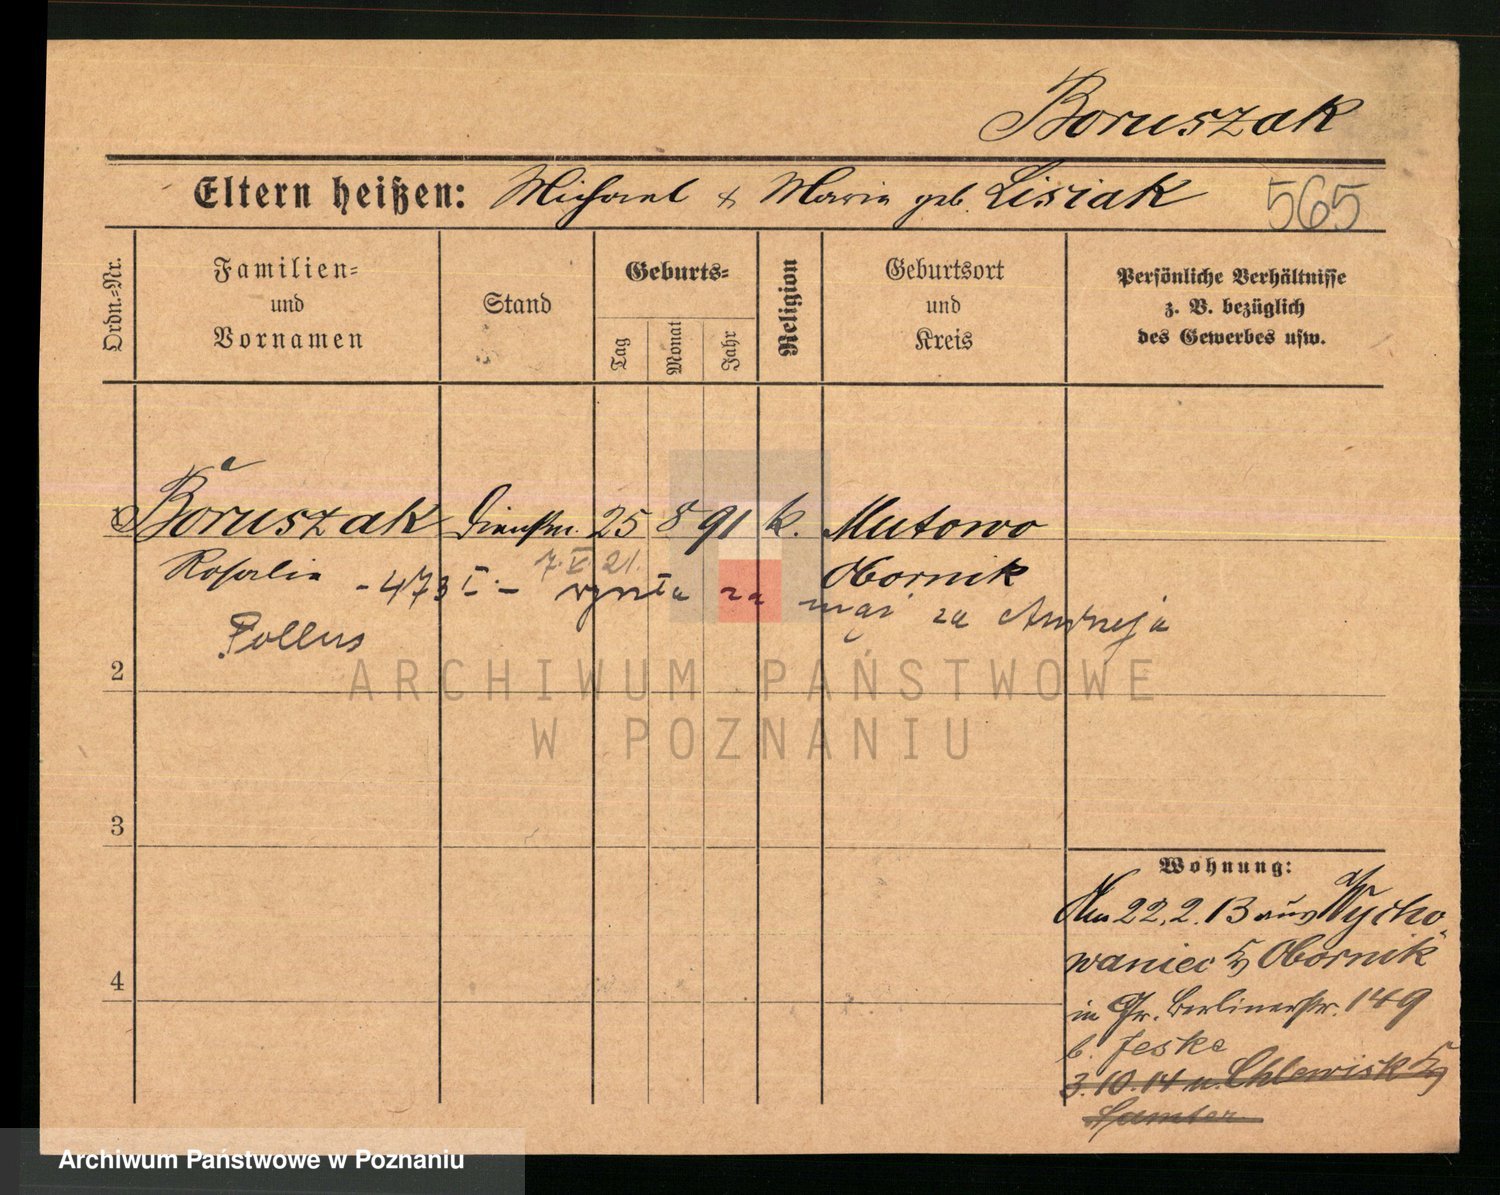 Boruszak
Eltern heißen: Michael & Maria geb. Lisiak 565
Ordn.-Nr.
Familien-
und
Vornamen
Stand
Geburts-
Tag
Monat
Jahr
Religion
Geburtsort
und
Kreis
Persönliche Verhältnisse
z. B. bezüglich
des Gewerbes usw.
Boruszak Dienstm. 25 8 91 k. Mutowo
Rosalie Obornik
- 473 I. - 7. V 21. wyszła za mąż za Andrzeja
Pollus
2
3
4
Wohnung:
Am 22.2.13 aus Wycho
waniec Obornik
in Gr. Berlinerstr. 149
b. Jeske
3.10.14 n. Chlewisk
Samter
ARCHIWUM PAŃSTWOWE
W POZNANIU
Archiwum Państwowe w Poznaniu